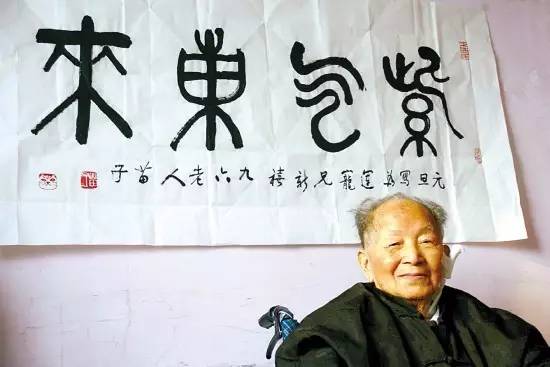 紫气東來
元旦寫 兄新禧 九六老人 苗子